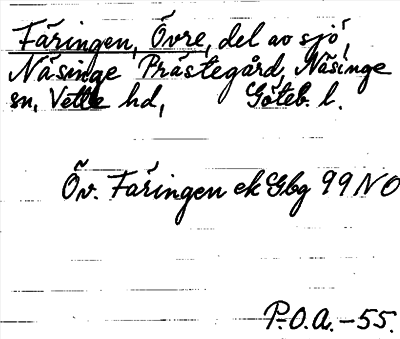 Färingen, Övre, del av sjö,
Näsinge Prästegård, Näsinge
sn, Vette hd, Göteb. l.
Öv. Färingen ek Gbg 99 NO
P.O.A.-55.